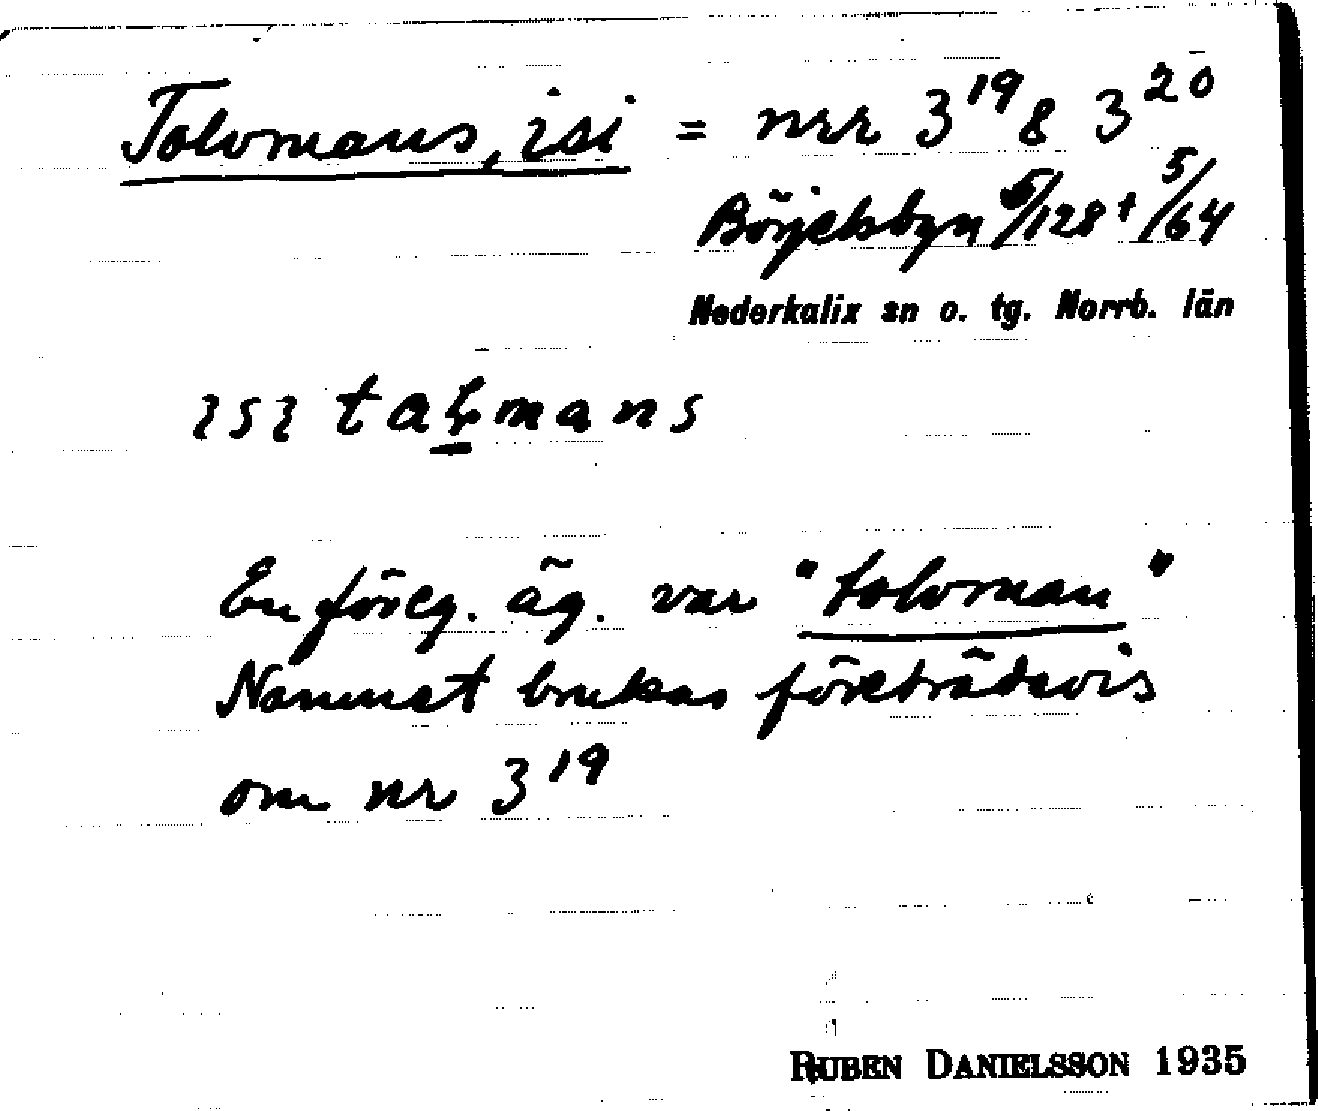 Tolvmans, isi = nrr 3¹⁹ & 3²⁰
Börjelsbyn 5/128 + 5/64
Nederkalix sn o. tg. Norrb. län
ɩsɩ talmans
En föreg. äg. var "tolvman"
Namnet brukas företrädevis
om nr 3¹⁹
RUBEN DANIELSSON 1935